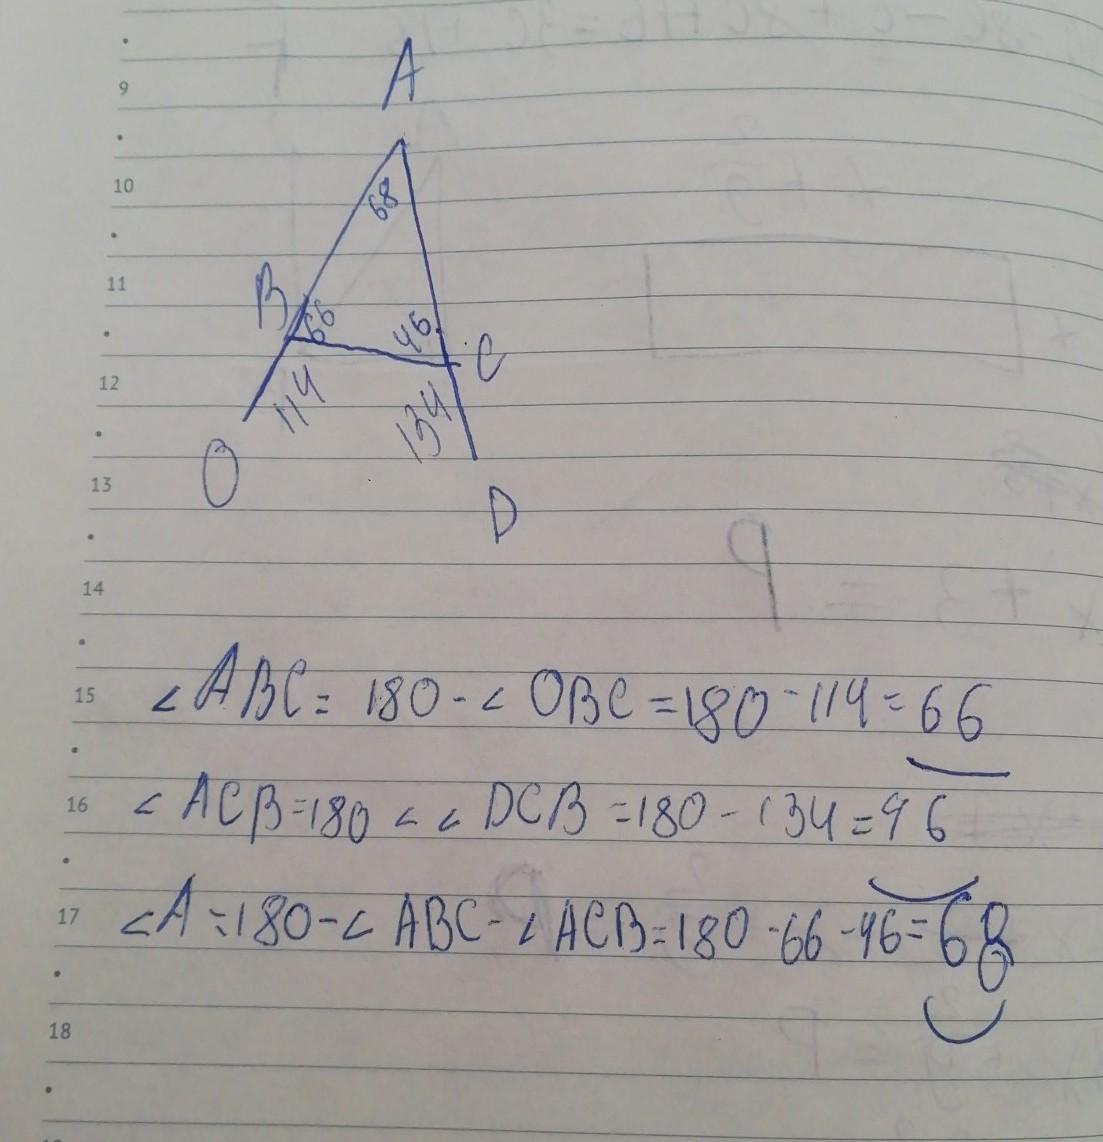 9
A
10
68
11
B
66
46
C
12
114
134
O
13
D
14
15
∠ABC= 180-∠OBC=180-114=66
16
∠ACB=180<∠DCB=180-134=46
17
∠A=180-∠ABC-∠ACB=180-66-46=68
18